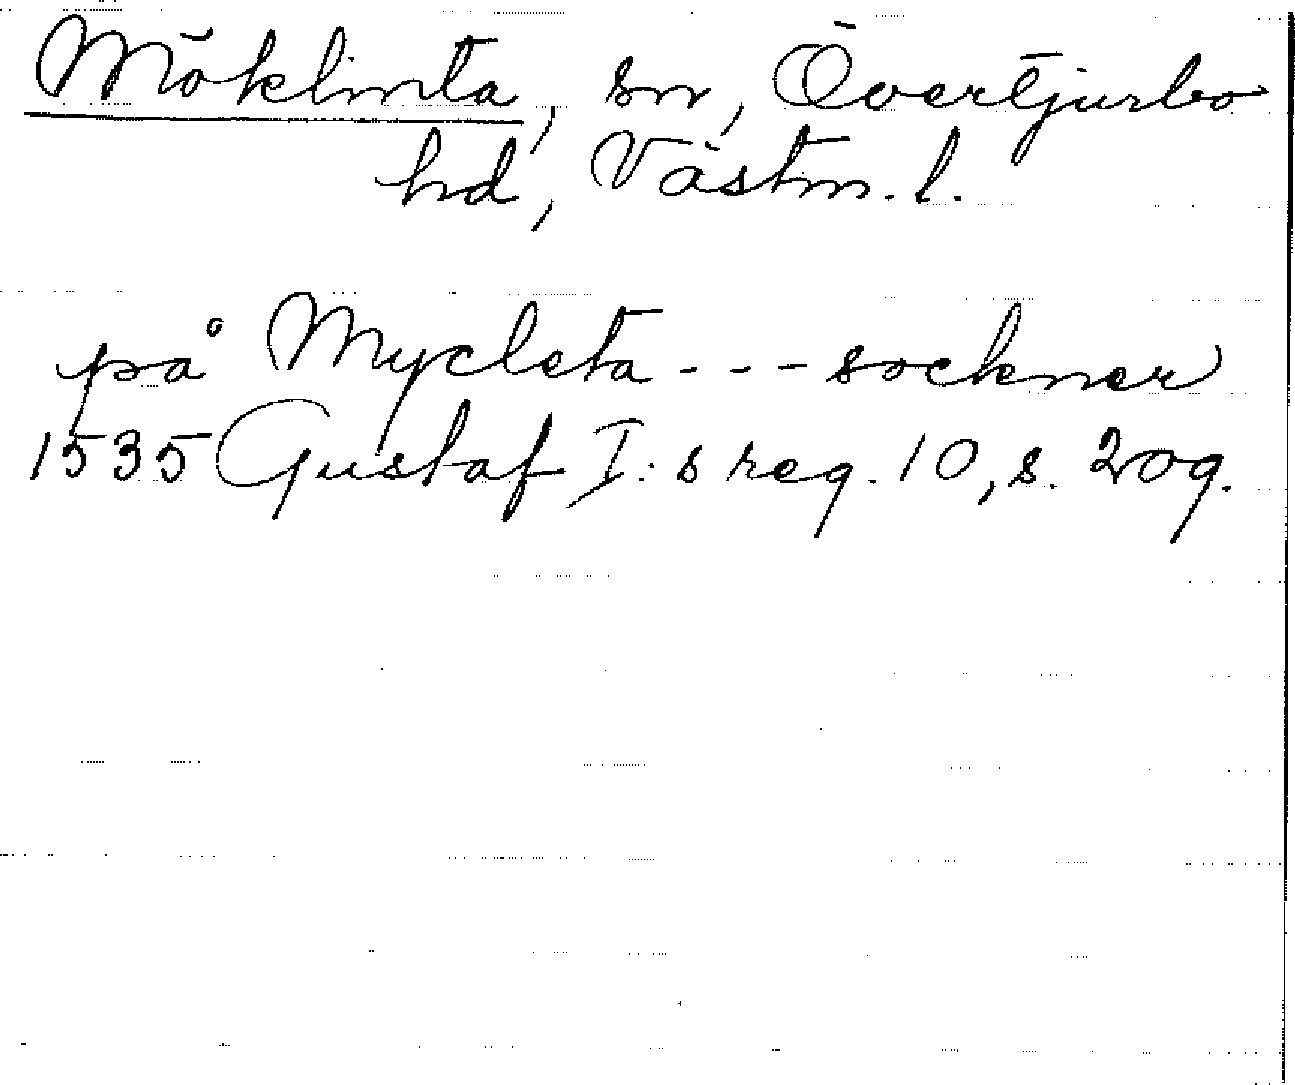 Möklinta, sn, Övertjurbo
hd, Västm. l.
på Mycleta - - - sockner
1535 Gustaf I: s reg. 10, s. 209.